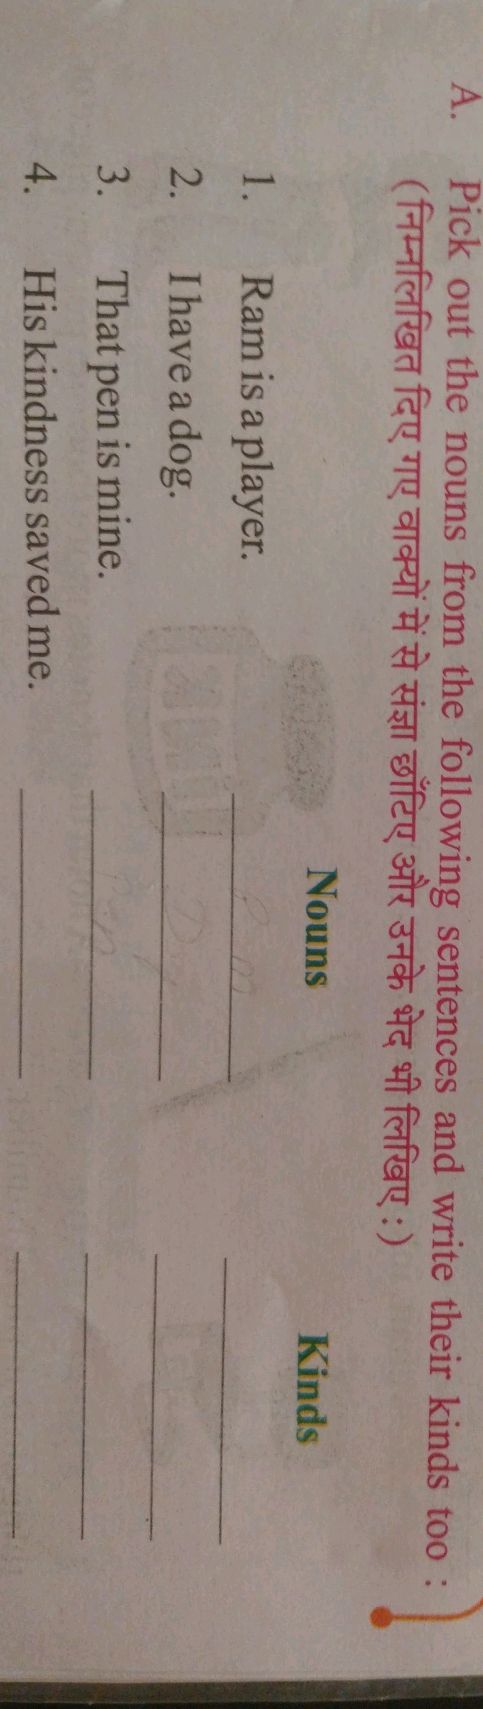 A. Pick out the nouns from the following sentences and write their kinds too :
(निम्नलिखित दिए गए वाक्यों में से संज्ञा छाँटिए और उनके भेद भी लिखिए :)
Nouns Kinds
1. Ram is a player.
2. I have a dog.
3. That pen is mine.
4. His kindness saved me.